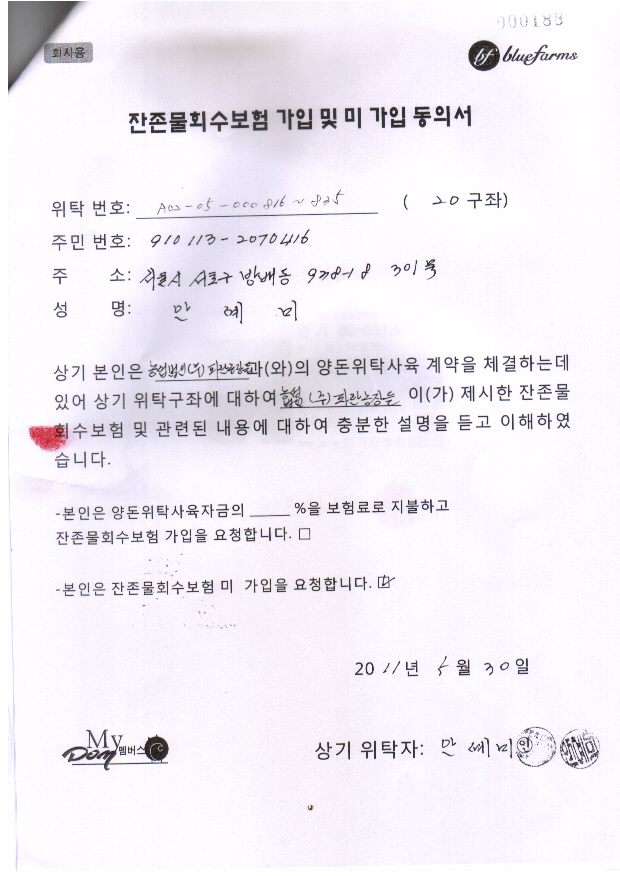 000189
회사용
bf bluefarms
잔존물회수보험 가입 및 미 가입 동의서
위탁 번호: A02-05-000816~835 ( 20 구좌)
주민 번호: 910113-2070416
주 소: 서울시 서초구 방배동 978-18 301호
성 명: 안 예 미
상기 본인은 농업법인(주)파란농장들과(와)의 양돈위탁사육 계약을 체결하는데
있어 상기 위탁구좌에 대하여 (주)파란농장들 이(가) 제시한 잔존물
회수보험 및 관련된 내용에 대하여 충분한 설명을 듣고 이해하였
습니다.
-본인은 양돈위탁사육자금의 _____ %을 보험료로 지불하고
잔존물회수보험 가입을 요청합니다. □
-본인은 잔존물회수보험 미 가입을 요청합니다. ☑
2011년 5월 30일
My Don 멤버스
상기 위탁자: 안 예 미 인